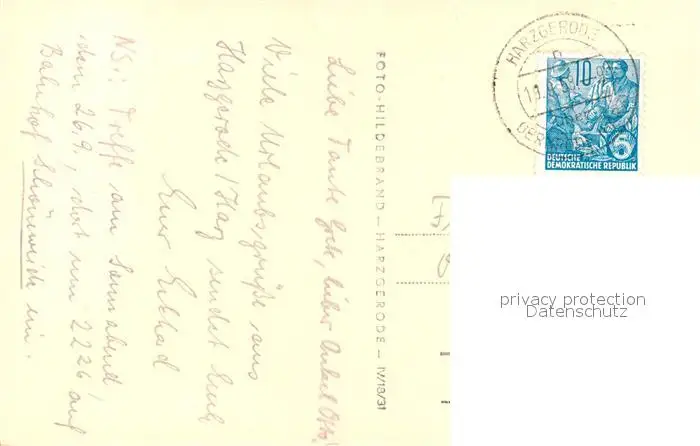 Liebe Tante Grete, lieber Onkel Otto!
Viele Urlaubsgrüße aus
Harzgerode/Harz sendet Euch
Euer Eckhard
NS.: Treffe am Sonnabend,
dem 26.9., dort um 22²⁶ auf
Bahnhof Schöneweide ein.
FOTO-HILDEBRAND — HARZGERODE — IV/18/31
HARZGERODE
10
5
DEUTSCHE
DEMOKRATISCHE REPUBLIK
privacy protection
Datenschutz